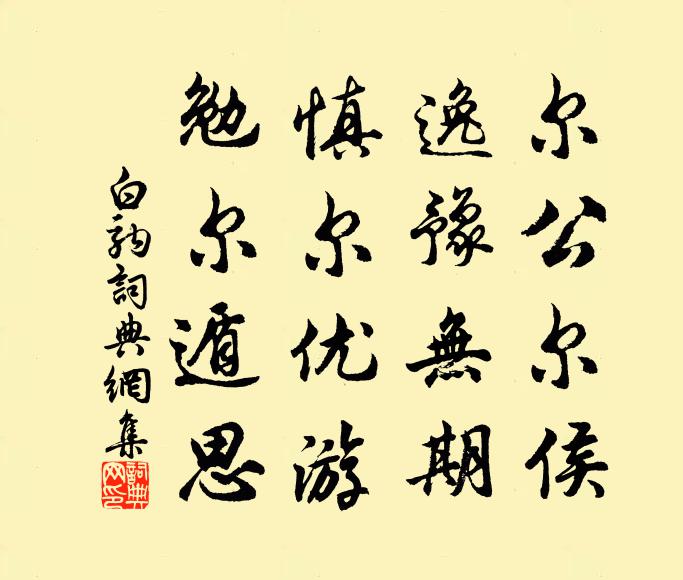 尔公尔侯
逸豫無期
慎尔优游
勉尔遁思
白駒詞典網集
詞典
网印